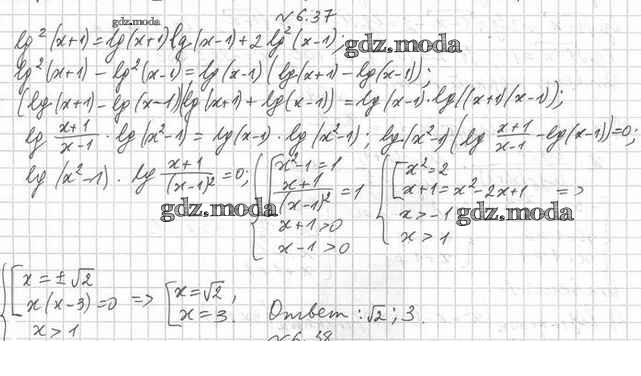 gdz.moda
№ 6.37
lg²(x+1) = lg(x+1)lg(x-1) + 2lg²(x-1); gdz.moda
lg²(x+1) - lg²(x-1) = lg(x-1)(lg(x+1) - lg(x-1));
(lg(x+1) - lg(x-1))(lg(x+1) + lg(x-1)) = lg(x-1)·lg((x+1)(x-1));
lg (x+1)/(x-1) · lg(x²-1) = lg(x-1)·lg(x²-1); lg(x²-1)(lg (x+1)/(x-1) - lg(x-1)) = 0;
lg(x²-1) · lg (x+1)/(x-1)² = 0; { [ x²-1=1 { [ x²=2
(x+1)/(x-1)² = 1 x+1 = x²-2x+1 =>
gdz.moda x+1>0 x>-1 gdz.moda
x-1>0 x>1
{ [ x = ±√2
x(x-3) = 0 => [ x=√2, x=3. Ответ: √2; 3.
x>1
№ 6.38